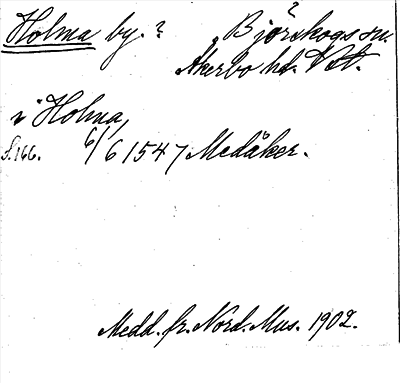 Holma by.? Björskogs sn.
Åkerbo hd. Vstm.
i Holma,
f. 166. 6/6 1547 Medåker.
Medd. fr. Nord. Mus. 1902.